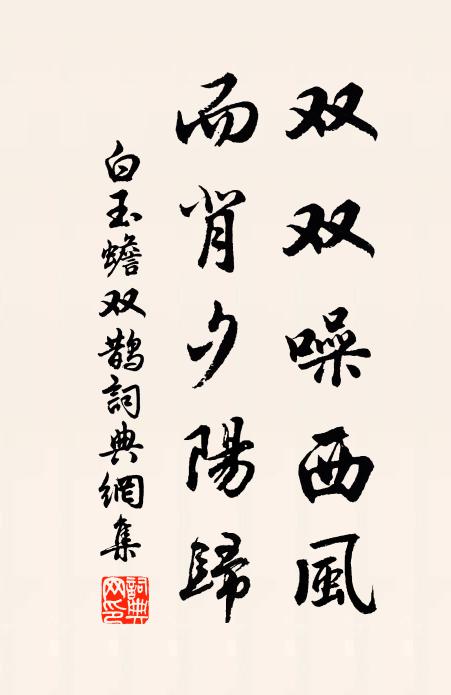 双双噪西風
而背夕陽歸
白玉蟾双鵲詞典網集
詞典網印